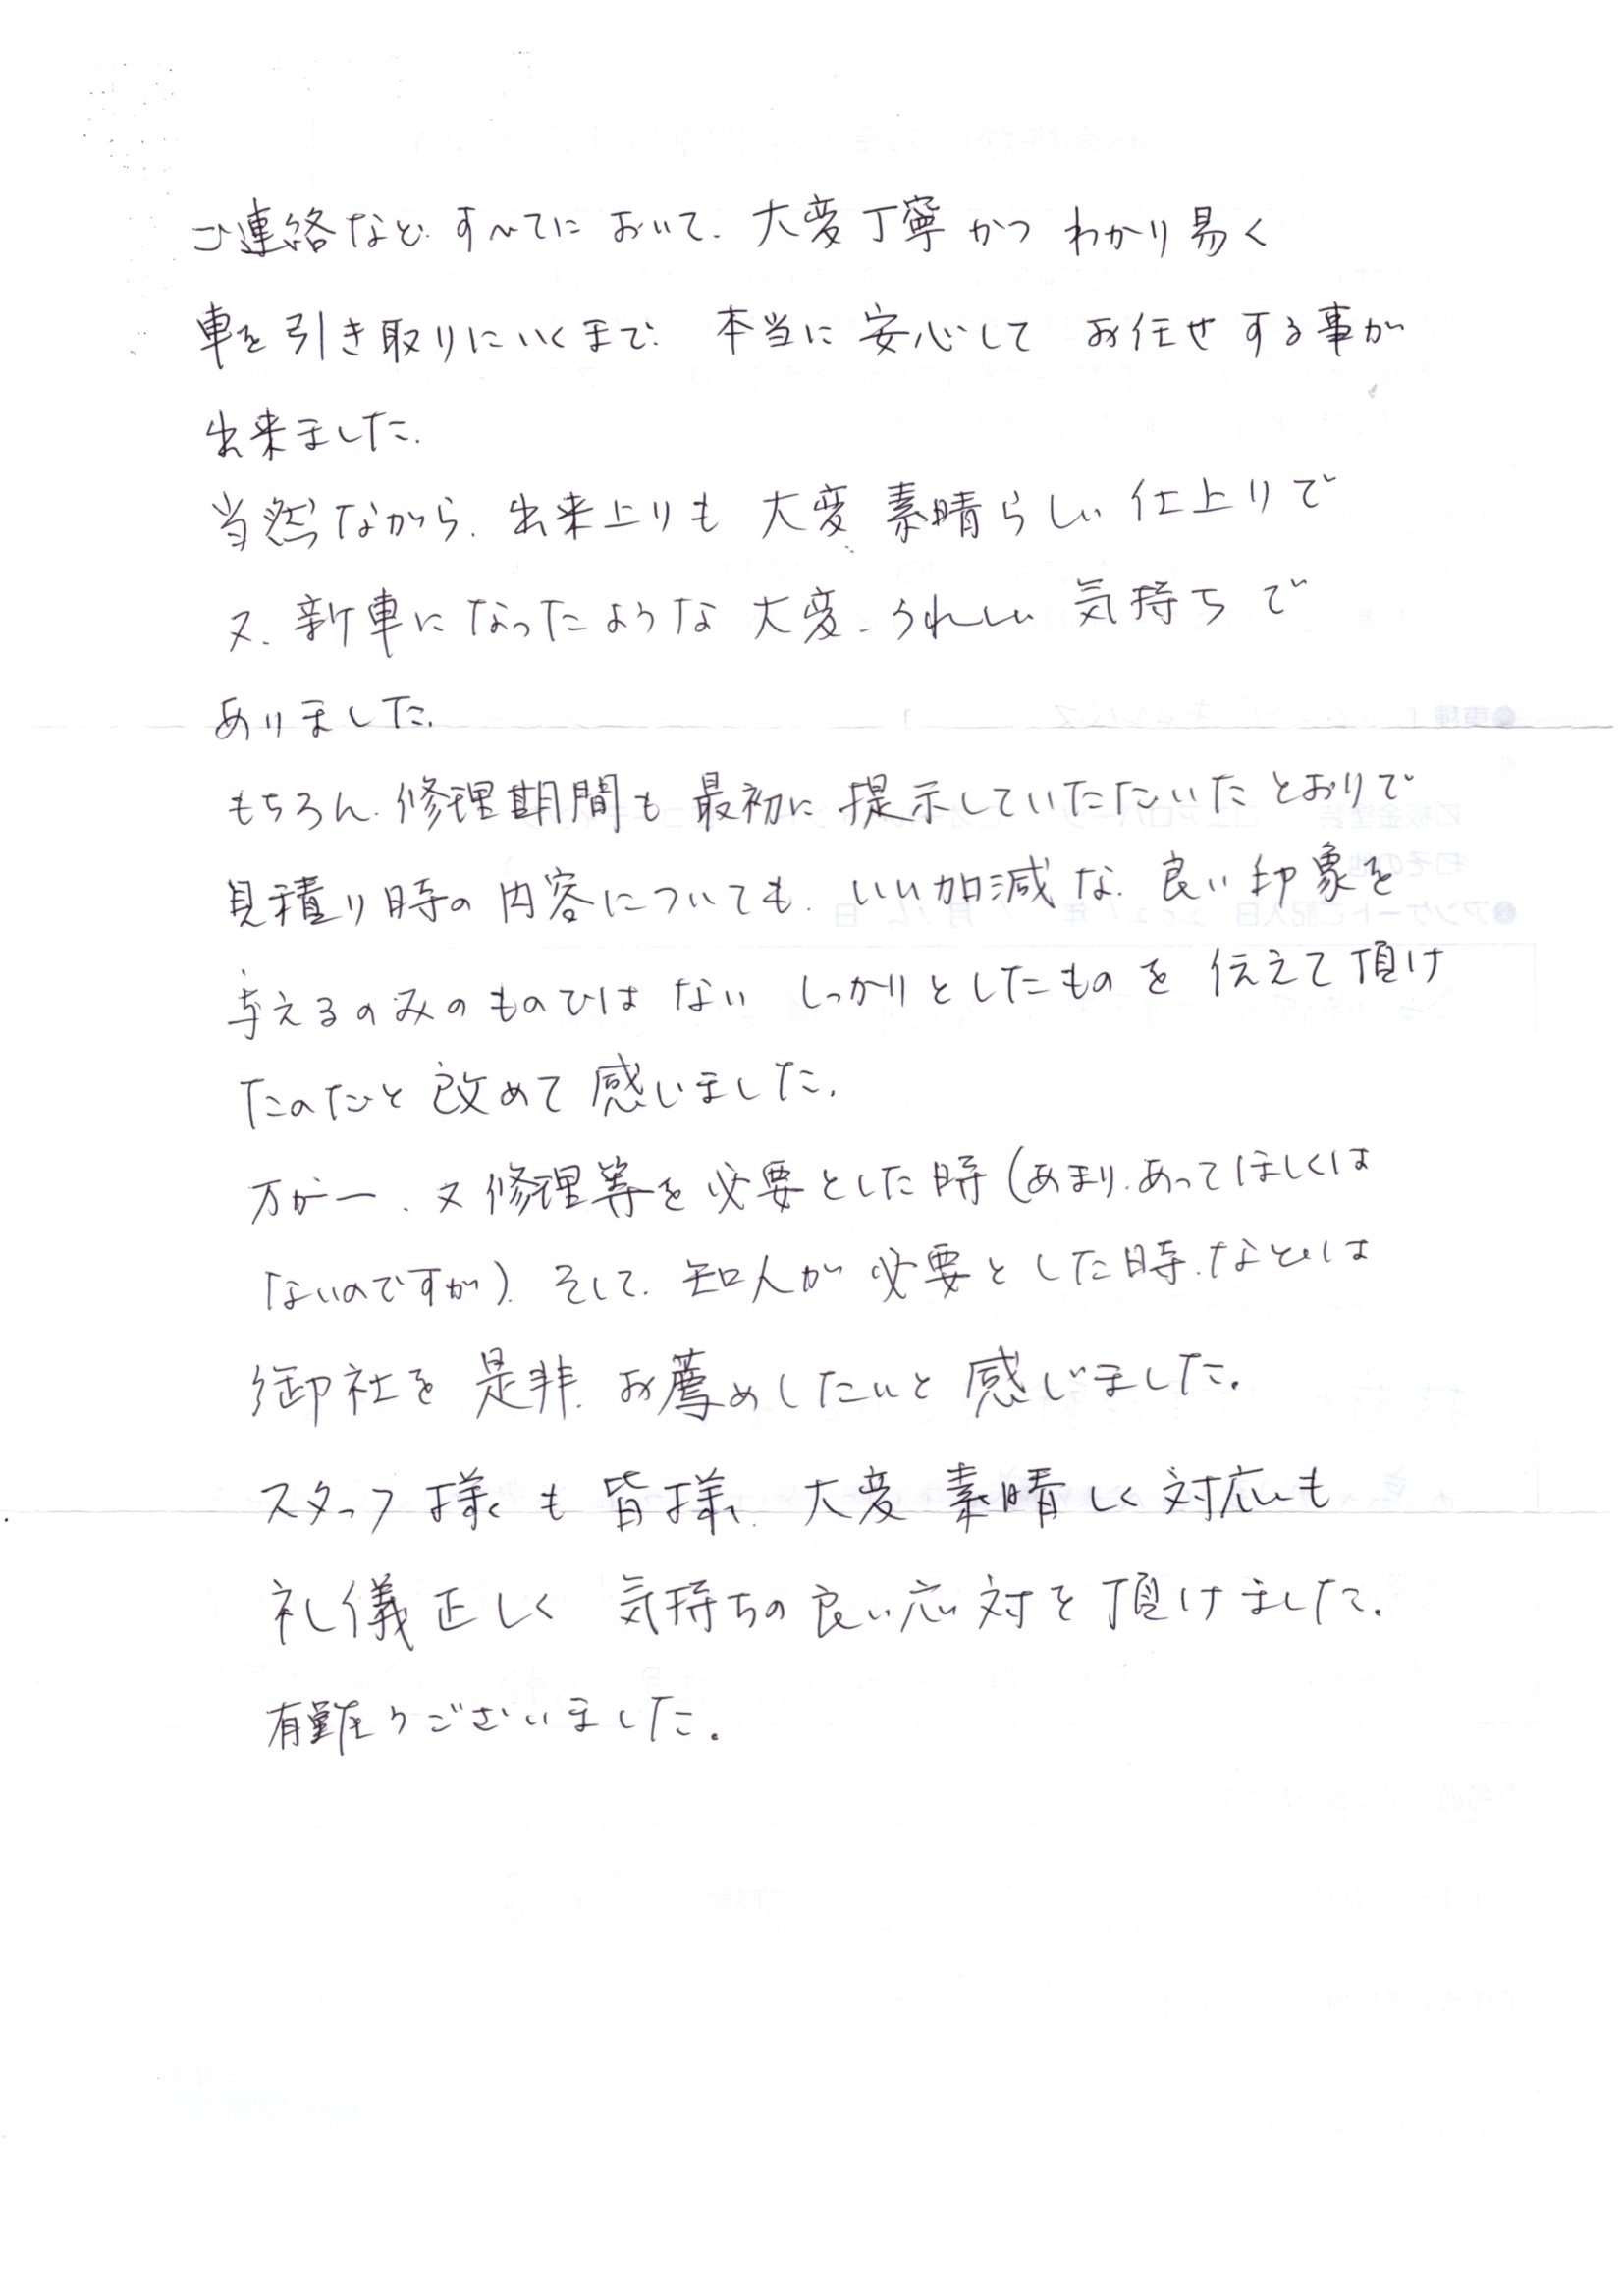 ご連絡など、すべてにおいて、大変丁寧かつわかり易く
車を引き取りにいくまで、本当に安心してお任せする事が
出来ました。
当然ながら、出来上りも大変素晴らしい仕上りで
又、新車になったような大変、うれしい気持ちで
ありました。
もちろん、修理期間も最初に提示していただいたとおりで
見積り時の内容についても、いい加減な、良い印象を
与えるのみのものではない しっかりとしたものを伝えて頂け
たのだと改めて感じました。
万が一、又修理等を必要とした時(あまり、あってほしくは
ないのですが)、そして、知人が必要とした時、などは
御社を是非、お薦めしたいと感じました。
スタッフ様も皆様、大変素晴しく対応も
礼儀正しく 気持ちの良い応対を頂けました。
有難うございました。